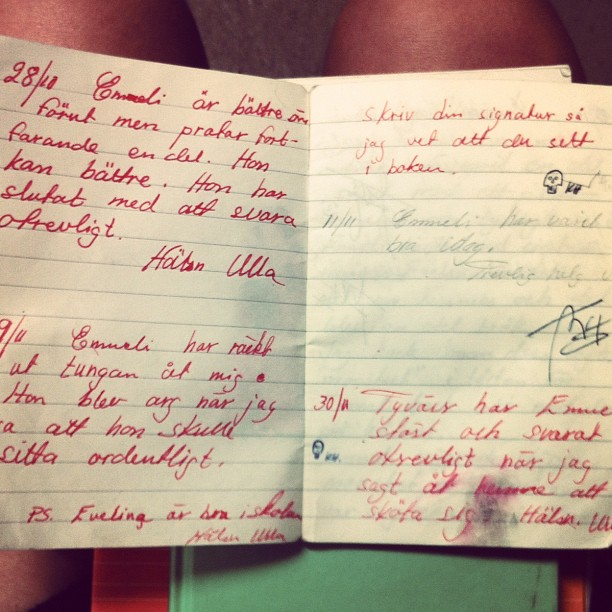 28/11 Emmeli är bättre än
förut men pratar fort-
farande en del. Hon
kan bättre. Hon har
slutat med att svara
otrevligt.
Hälsn Ulla
9/11 Emmeli har räckt
ut tungan åt mig.
Hon blev arg när jag
sa att hon skulle
sitta ordentligt.
PS. Eveling är bra i skolan
Hälsn Ulla
skriv din signatur så
jag vet att du sett
i boken.
11/11 Emmeli har varit
bra idag.
Trevlig helg
30/11 Tyvärr har Emme
stört och svarat
otrevligt när jag
sagt åt henne att
sköta sig. Hälsn. Ulla